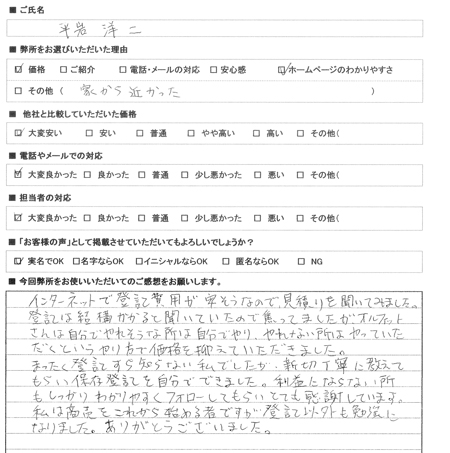 ■ ご氏名
平岩 洋二
■ 弊所をお選びいただいた理由
☑ 価格 □ ご紹介 □ 電話・メールの対応 □ 安心感 ☑ ホームページのわかりやすさ
□ その他 ( 家から近かった )
■ 他社と比較していただいた価格
☑ 大変安い □ 安い □ 普通 □ やや高い □ 高い □ その他(
■ 電話やメールでの対応
☑ 大変良かった □ 良かった □ 普通 □ 少し悪かった □ 悪い □ その他(
■ 担当者の対応
☑ 大変良かった □ 良かった □ 普通 □ 少し悪かった □ 悪い □ その他(
■ 「お客様の声」として掲載させていただいてもよろしいでしょうか?
☑ 実名でOK □ 名字ならOK □ イニシャルならOK □ 匿名ならOK □ NG
■ 今回弊所をお使いいただいてのご感想をお願いします。
インターネットで登記費用が安そうなので見積りを聞いてみました。
登記は結構かかると聞いていたので焦ってましたがオルフィット
さんは自分でやれそうな所は自分でやり、やれない所はやっていた
だくというやり方で価格を抑えていただきました。
まったく登記すら知らない私でしたが、親切丁寧に教えて
もらい保存登記を自分でできました。利益にならない所
もしっかりわかりやすくフォローしてもらいとても感謝しています。
私は商売をこれから始める者ですが登記以外も勉強に
なりました。ありがとうございました。